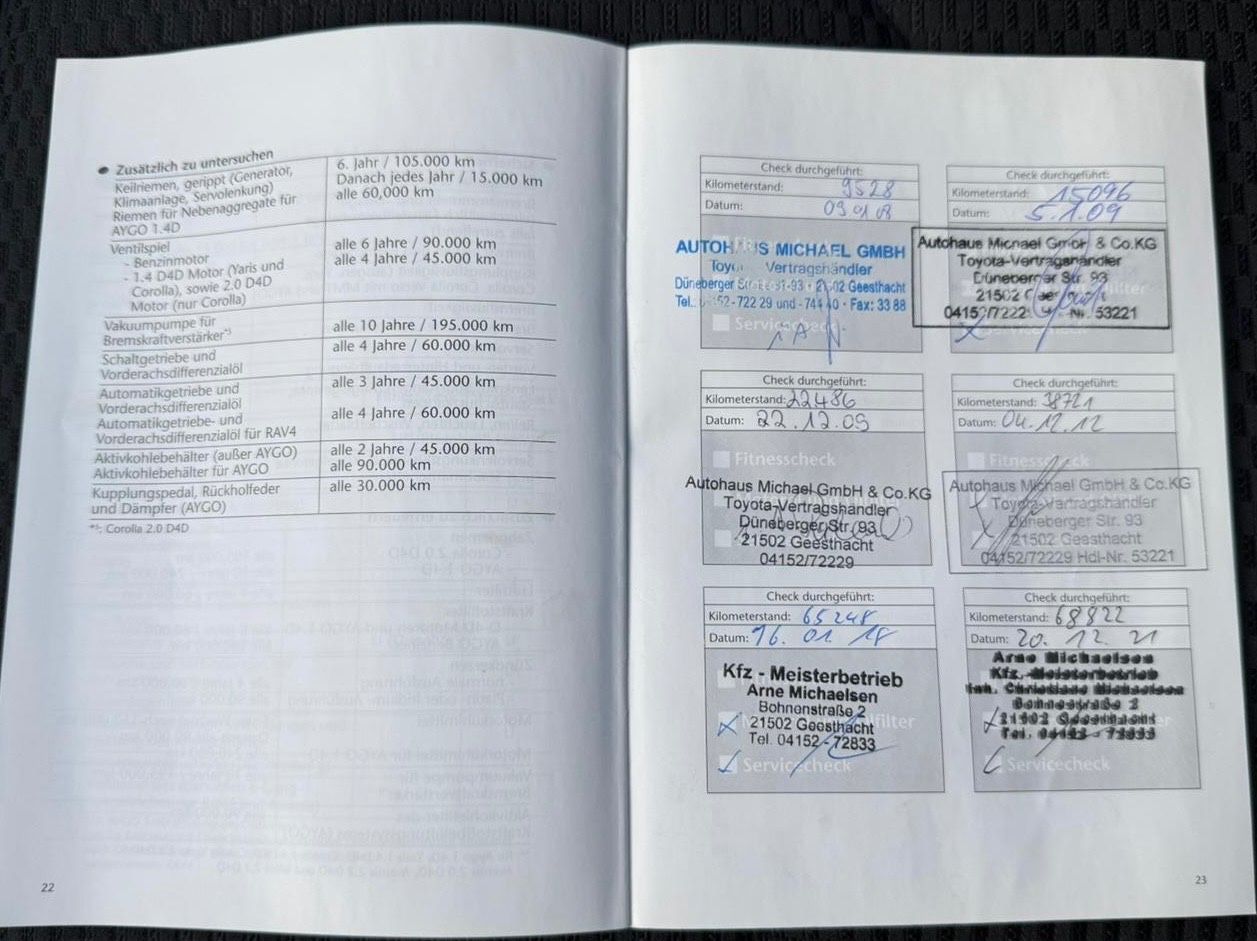 ● Zusätzlich zu untersuchen
Keilriemen, gerippt (Generator,
Klimaanlage, Servolenkung)
Riemen für Nebenaggregate für
AYGO 1.4D
6. Jahr / 105.000 km
Danach jedes Jahr / 15.000 km
alle 60,000 km
Ventilspiel
- Benzinmotor
- 1.4 D4D Motor (Yaris und
Corolla), sowie 2.0 D4D
Motor (nur Corolla)
alle 6 Jahre / 90.000 km
alle 4 Jahre / 45.000 km
Vakuumpumpe für
Bremskraftverstärker*⁾
alle 10 Jahre / 195.000 km
Schaltgetriebe und
Vorderachsdifferenzialöl
alle 4 Jahre / 60.000 km
Automatikgetriebe und
Vorderachsdifferenzialöl
alle 3 Jahre / 45.000 km
Automatikgetriebe- und
Vorderachsdifferenzialöl für RAV4
alle 4 Jahre / 60.000 km
Aktivkohlebehälter (außer AYGO)
Aktivkohlebehälter für AYGO
alle 2 Jahre / 45.000 km
alle 90.000 km
Kupplungspedal, Rückholfeder
und Dämpfer (AYGO)
alle 30.000 km
*⁾: Corolla 2.0 D4D
22
Check durchgeführt:
Kilometerstand: 9528
Datum: 09 01 08
AUTOHAUS MICHAEL GMBH
Vertragshändler
Düneberger
Geesthacht
Tel. 722 29 und Fax: 33 88
Servicecheck
Check durchgeführt:
Kilometerstand: 15096
Datum: 5.1.09
Autohaus Michael GmbH & Co.KG
Toyota-Vertragshändler
Düneberger Str. 93
21502
53221
Check durchgeführt:
Kilometerstand: 22486
Datum: 22.12.09
Fitnesscheck
Autohaus Michael GmbH & Co.KG
Toyota-Vertragshändler
Düneberger Str. 93
21502 Geesthacht
04152/72229
Check durchgeführt:
Kilometerstand: 38721
Datum: 04.12.12
Fitnesscheck
Autohaus Michael GmbH & Co.KG
Toyota-Vertragshändler
Düneberger Str. 93
21502 Geesthacht
04152/72229 Hdl-Nr. 53221
Check durchgeführt:
Kilometerstand: 65248
Datum: 16. 01. 18
Kfz - Meisterbetrieb
Arne Michaelsen
Bohnenstraße 2
21502 Geesthacht
Tel. 04152 - 72833
Servicecheck
Check durchgeführt:
Kilometerstand: 68822
Datum: 20. 12. 21
Arne Michaelsen
Kfz.-Meisterbetrieb
Inh. Christiane Michaelsen
Bohnenstraße 2
21502 Geesthacht
Tel. 04152 - 72833
Servicecheck
23